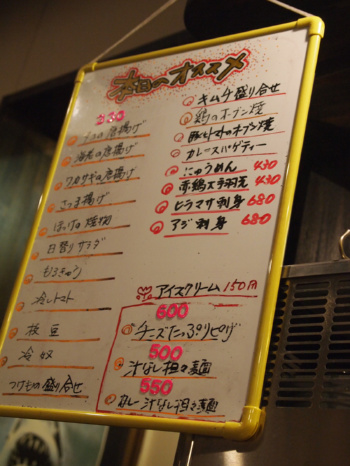 本日のオススメ
280
タコの唐揚げ
海老の唐揚げ
ワカサギの唐揚げ
さつま揚げ
ほっけの焼物
日替りサラダ
もろきゅう
冷しトマト
枝豆
冷奴
つけもの盛り合せ
キムチ盛り合せ
鶏のオーブン焼
豚とトマトのオーブン焼
カレースパゲティー
にゅうめん 430
赤鶏スネ羽元 430
ヒラマサ刺身 680
アジ刺身 680
アイスクリーム 150円
600
チーズたっぷりピザ
500
汁なし担々麺
550
カレー汁なし担々麺